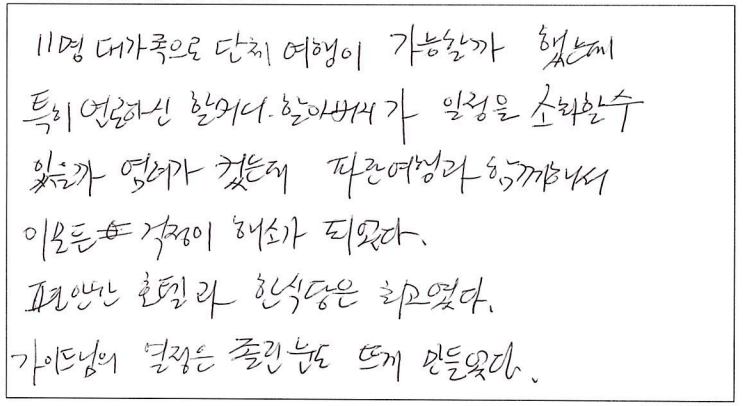 11명 대가족으로 단체 여행이 가능할까 했는데
특히 연로하신 할머니.할아버지가 일정을 소화할수
있을까 염려가 컸는데 파란여행과 함께해서
이모든 걱정이 해소가 되었다.
편안한 호텔과 한식당은 최고였다.
가이드님의 열정은 졸린눈도 뜨게 만들었다.